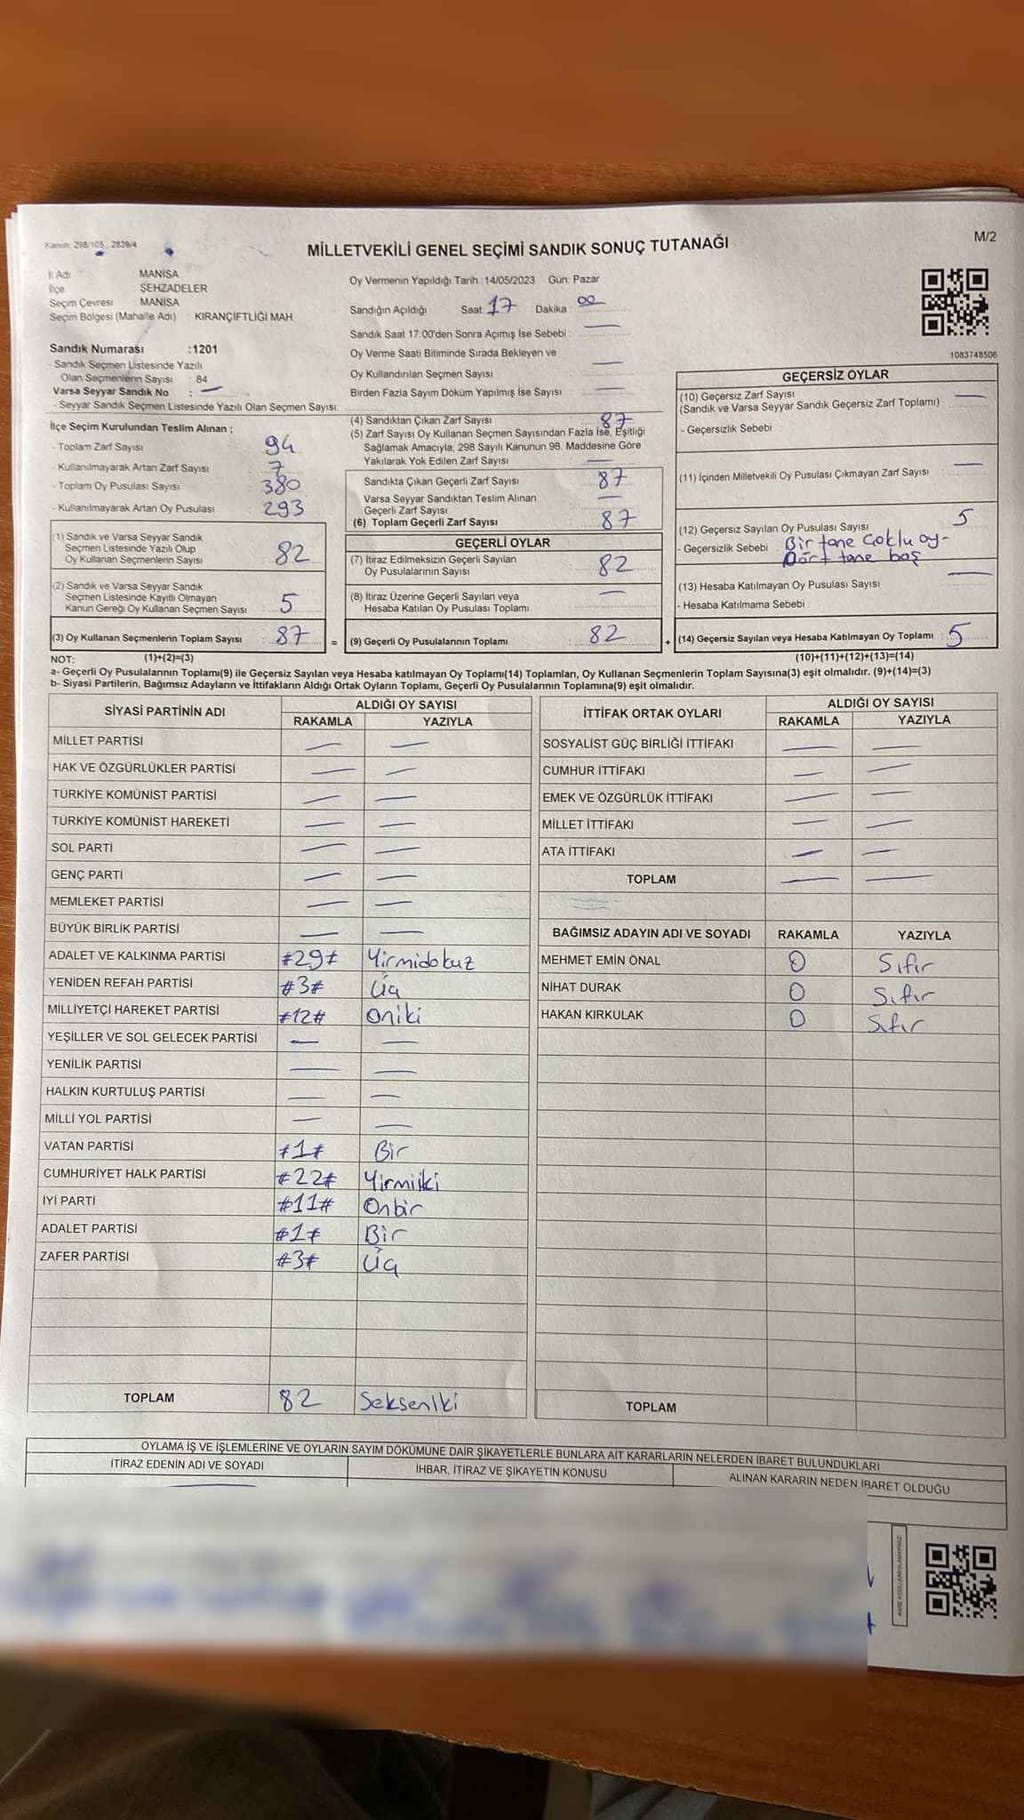 Kanun: 298/105, 2839/4
M/2
MİLLETVEKİLİ GENEL SEÇİMİ SANDIK SONUÇ TUTANAĞI
İl Adı MANİSA
İlçe ŞEHZADELER
Seçim Çevresi MANİSA
Seçim Bölgesi (Mahalle Adı) KIRANÇİFTLİĞİ MAH
Sandık Numarası :1201
- Sandık Seçmen Listesinde Yazılı
Olan Seçmenlerin Sayısı : 84
Varsa Seyyar Sandık No : —
- Seyyar Sandık Seçmen Listesinde Yazılı Olan Seçmen Sayısı
Oy Vermenin Yapıldığı Tarih :14/05/2023 Gün: Pazar
Sandığın Açıldığı Saat 17 Dakika 00
Sandık Saat 17:00'den Sonra Açımış İse Sebebi —
Oy Verme Saati Bitiminde Sırada Bekleyen ve
Oy Kullandırılan Seçmen Sayısı —
Birden Fazla Sayım Döküm Yapılmış İse Sayısı —
1083748506
İlçe Seçim Kurulundan Teslim Alınan ;
- Toplam Zarf Sayısı 94
- Kullanılmayarak Artan Zarf Sayısı 7
- Toplam Oy Pusulası Sayısı 380
- Kullanılmayarak Artan Oy Pusulası 293
(1) Sandık ve Varsa Seyyar Sandık
Seçmen Listesinde Yazılı Olup
Oy Kullanan Seçmenlerin Sayısı 82
(2) Sandık ve Varsa Seyyar Sandık
Seçmen Listesinde Kayıtlı Olmayan
Kanun Gereği Oy Kullanan Seçmen Sayısı 5
(3) Oy Kullanan Seçmenlerin Toplam Sayısı 87 =
(4) Sandıktan Çıkan Zarf Sayısı 87
(5) Zarf Sayısı Oy Kullanan Seçmen Sayısından Fazla İse, Eşitliği
Sağlamak Amacıyla, 298 Sayılı Kanunun 98. Maddesine Göre
Yakılarak Yok Edilen Zarf Sayısı —
Sandıkta Çıkan Geçerli Zarf Sayısı 87
Varsa Seyyar Sandıktan Teslim Alınan
Geçerli Zarf Sayısı —
(6) Toplam Geçerli Zarf Sayısı 87
GEÇERLİ OYLAR
(7) İtiraz Edilmeksizin Geçerli Sayılan
Oy Pusulalarının Sayısı 82
(8) İtiraz Üzerine Geçerli Sayılan veya
Hesaba Katılan Oy Pusulası Toplamı —
(9) Geçerli Oy Pusulalarının Toplamı 82 +
GEÇERSİZ OYLAR
(10) Geçersiz Zarf Sayısı —
(Sandık ve Varsa Seyyar Sandık Geçersiz Zarf Toplamı)
- Geçersizlik Sebebi
(11) İçinden Milletvekili Oy Pusulası Çıkmayan Zarf Sayısı —
(12) Geçersiz Sayılan Oy Pusulası Sayısı 5
- Geçersizlik Sebebi Bir tane Çoklu oy-
Dört tane boş
(13) Hesaba Katılmayan Oy Pusulası Sayısı —
- Hesaba Katılmama Sebebi
(14) Geçersiz Sayılan veya Hesaba Katılmayan Oy Toplamı 5
NOT: (1)+(2)=(3) (10)+(11)+(12)+(13)=(14)
a- Geçerli Oy Pusulalarının Toplamı(9) ile Geçersiz Sayılan veya Hesaba katılmayan Oy Toplamı(14) Toplamları, Oy Kullanan Seçmenlerin Toplam Sayısına(3) eşit olmalıdır. (9)+(14)=(3)
b- Siyasi Partilerin, Bağımsız Adayların ve İttifakların Aldığı Ortak Oyların Toplamı, Geçerli Oy Pusulalarının Toplamına(9) eşit olmalıdır.
SİYASİ PARTİNİN ADI ALDIĞI OY SAYISI
RAKAMLA YAZIYLA
MİLLET PARTİSİ — —
HAK VE ÖZGÜRLÜKLER PARTİSİ — —
TÜRKİYE KOMÜNİST PARTİSİ — —
TÜRKİYE KOMÜNİST HAREKETİ — —
SOL PARTİ — —
GENÇ PARTİ — —
MEMLEKET PARTİSİ — —
BÜYÜK BİRLİK PARTİSİ — —
ADALET VE KALKINMA PARTİSİ #29# Yirmidokuz
YENİDEN REFAH PARTİSİ #3# Üç
MİLLİYETÇİ HAREKET PARTİSİ #12# Oniki
YEŞİLLER VE SOL GELECEK PARTİSİ — —
YENİLİK PARTİSİ — —
HALKIN KURTULUŞ PARTİSİ — —
MİLLİ YOL PARTİSİ — —
VATAN PARTİSİ #1# Bir
CUMHURİYET HALK PARTİSİ #22# Yirmiiki
İYİ PARTİ #11# Onbir
ADALET PARTİSİ #1# Bir
ZAFER PARTİSİ #3# Üç
TOPLAM 82 Seksenİki
İTTİFAK ORTAK OYLARI ALDIĞI OY SAYISI
RAKAMLA YAZIYLA
SOSYALİST GÜÇ BİRLİĞİ İTTİFAKI — —
CUMHUR İTTİFAKI — —
EMEK VE ÖZGÜRLÜK İTTİFAKI — —
MİLLET İTTİFAKI — —
ATA İTTİFAKI — —
TOPLAM — —
BAĞIMSIZ ADAYIN ADI VE SOYADI RAKAMLA YAZIYLA
MEHMET EMİN ÖNAL 0 Sıfır
NİHAT DURAK 0 Sıfır
HAKAN KIRKULAK 0 Sıfır
TOPLAM
OYLAMA İŞ VE İŞLEMLERİNE VE OYLARIN SAYIM DÖKÜMÜNE DAİR ŞİKAYETLERLE BUNLARA AİT KARARLARIN NELERDEN İBARET BULUNDUKLARI
İTİRAZ EDENİN ADI VE SOYADI İHBAR, İTİRAZ VE ŞİKAYETİN KONUSU ALINAN KARARIN NEDEN İBARET OLDUĞU